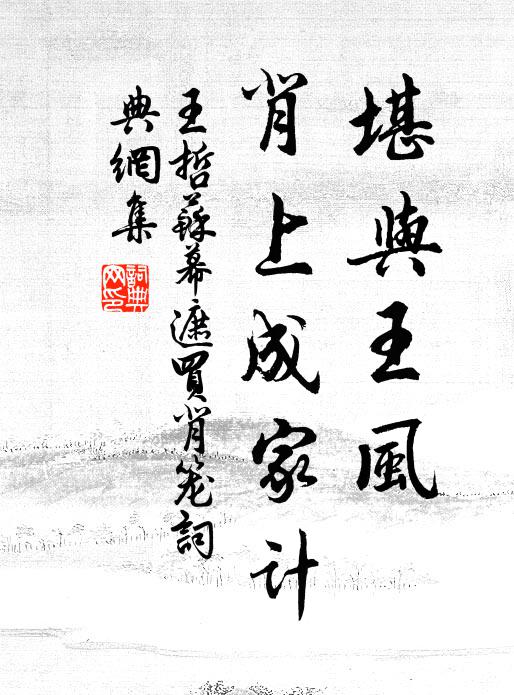 堪與王風
肖上成家计
王哲蘇幕遮買肖笼詞
典網集
詞典网印